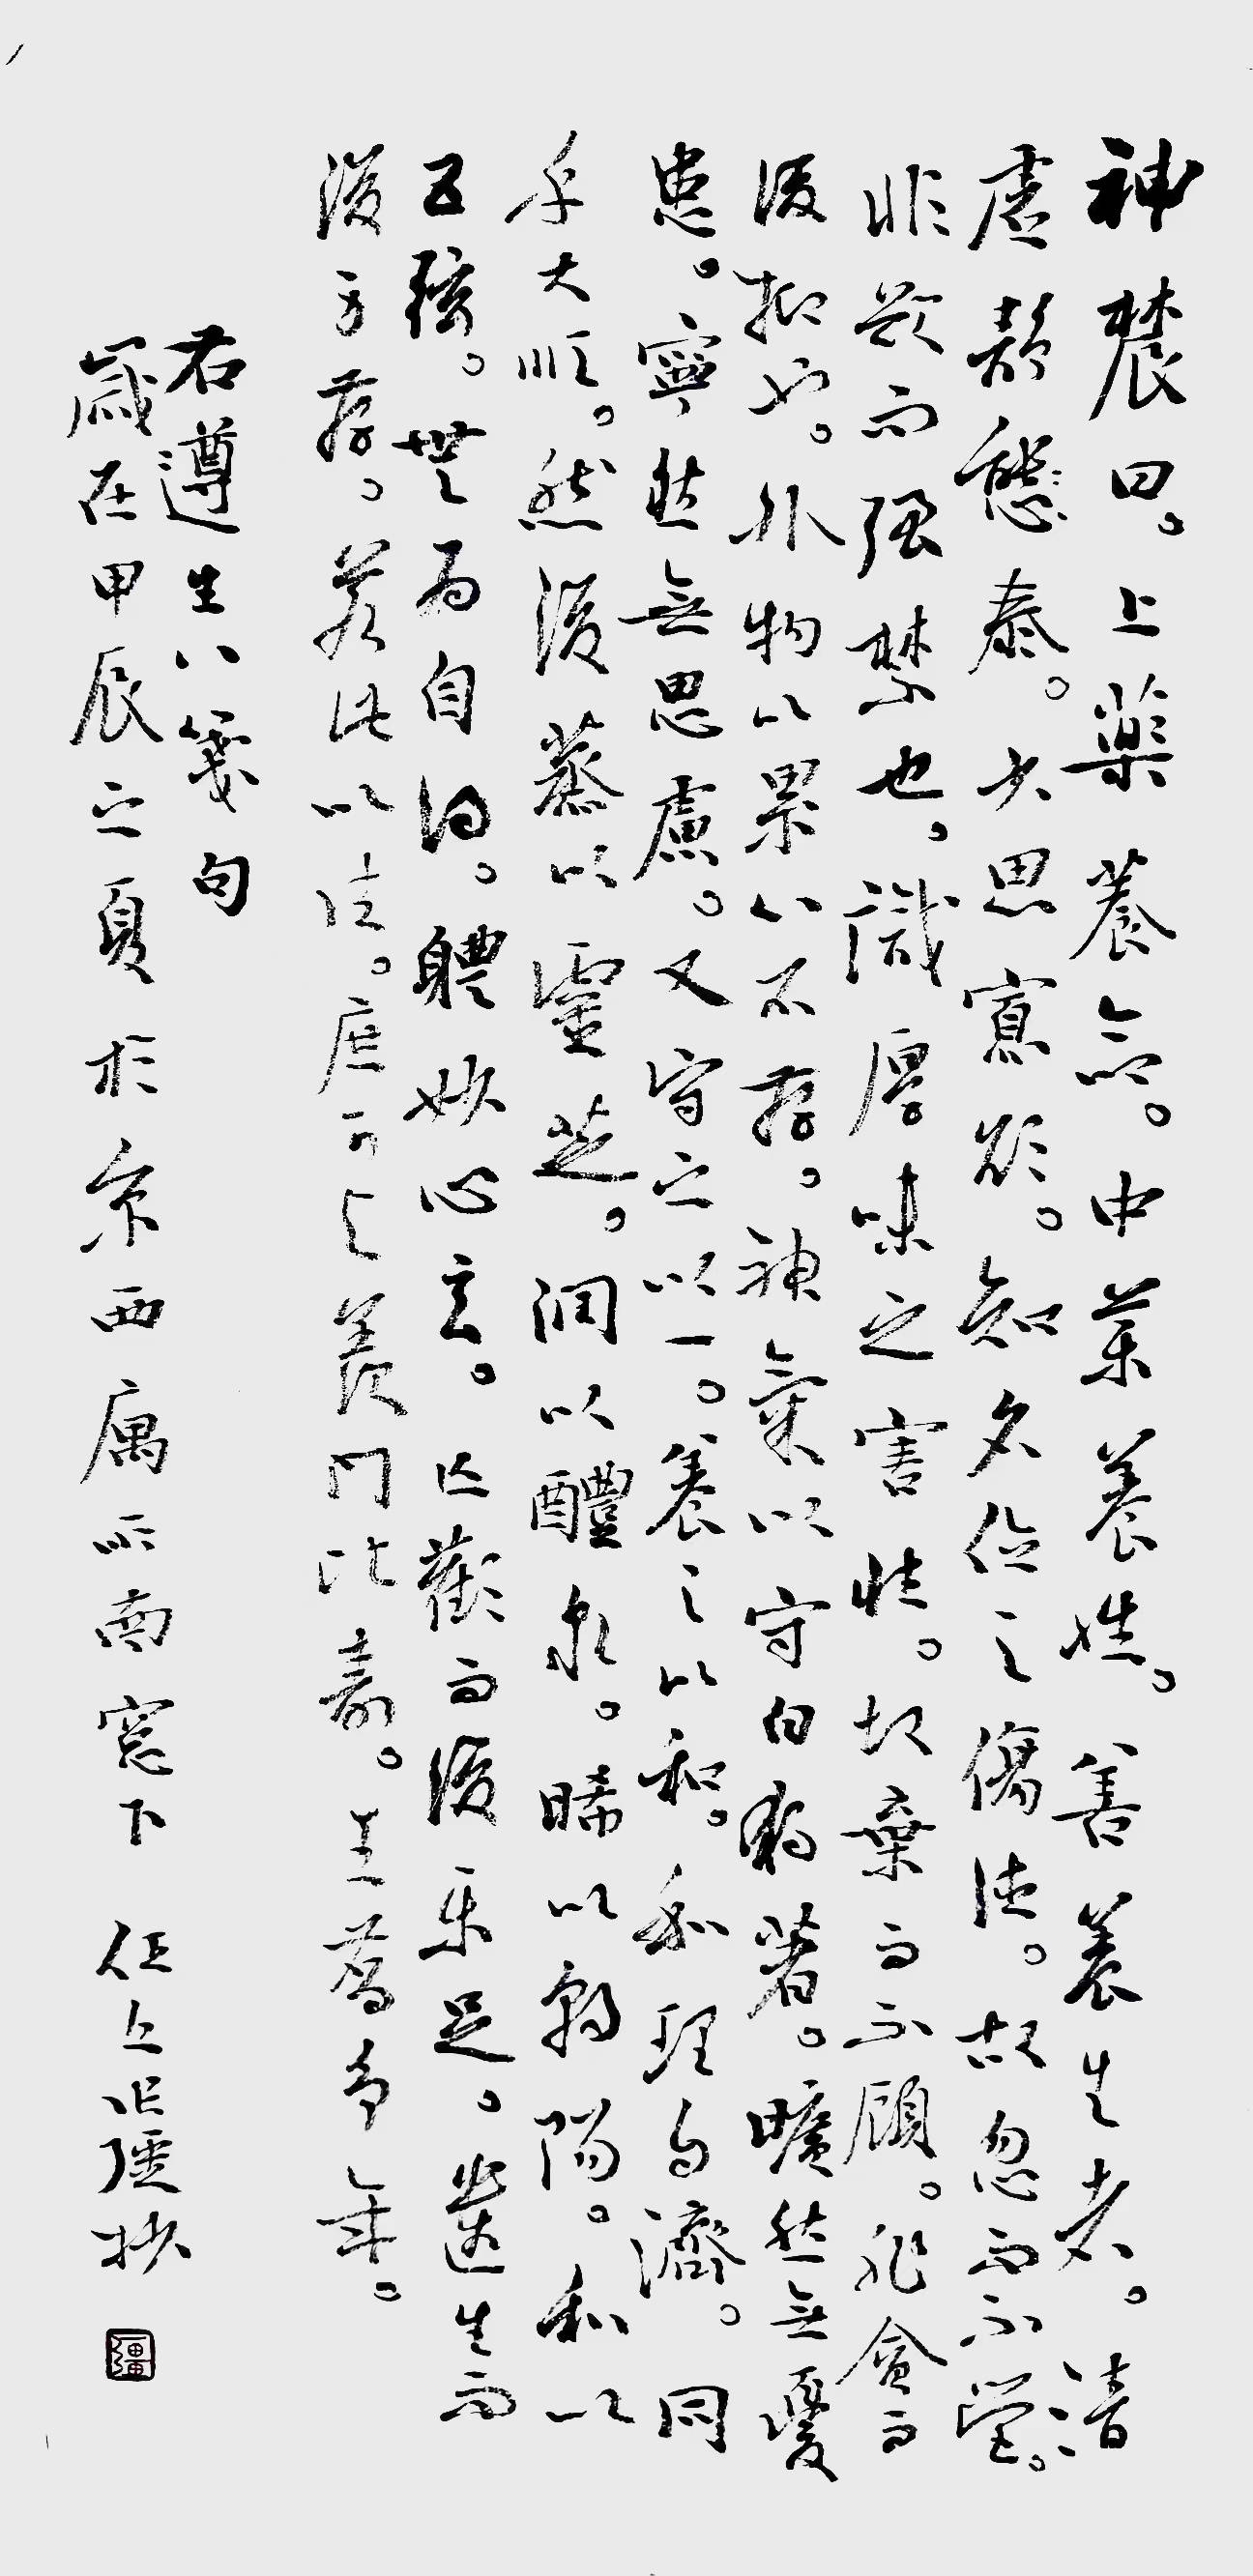 神農曰。上藥養命。中藥養性。善養生者。清
虛静態泰。少思寡欲。知名位之傷德。故忽而不營。
非欲而强禁也。識厚味之害性。故棄而不顧。非貪而
後抑也。外物以累心不存。神氣以守白獨著。曠然無憂
患。寧然無思慮。又守之以一。養之以和。和理日濟。同
乎大順。然後蒸以靈芝。潤以醴泉。晞以朝陽。和以
五絃。無為自得。體妙心玄。忘歡而後樂足。遺生而
後身存。若此以往。庶可與羨門比壽。王喬爭年。
右遵生八箋句
歲在甲辰之夏於京西寓所南窓下 任上作疆抄
疆